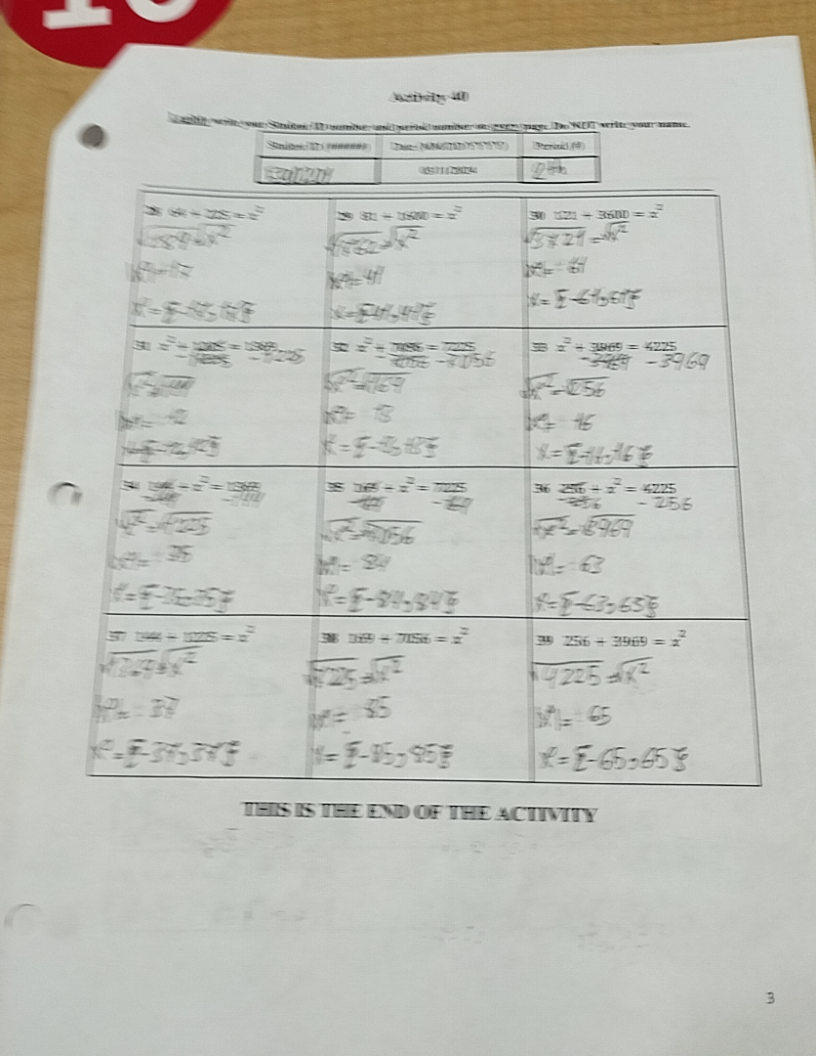 Activity 40
Legibly write your Student ID number and period number on every page. Do NOT write your name.
Student ID (######) Date (MM/DD/YYYY) Period (#)
28 64 + 225 = x²
√289 = √x²
|x| = 17
x = {-17, 17}
29 81 + 1600 = x²
|x| = 41
x = {-41, 41}
30 121 + 3600 = x²
√3721 = √x²
|x| = 61
x = {-61, 61}
31 x² + 1225 = 1369
-1225 -1225
√x² = √144
|x| = 12
x = {-12, 12}
32 x² + 7056 = 7225
-7056 -7056
√x² = √169
|x| = 13
x = {-13, 13}
33 x² + 3969 = 4225
-3969 -3969
√x² = √256
|x| = 16
x = {-16, 16}
34 144 + x² = 1369
-144 -144
√x² = √1225
|x| = 35
x = {-35, 35}
35 169 + x² = 7225
-169 -169
√x² = √7056
|x| = 84
x = {-84, 84}
36 256 + x² = 4225
-256 -256
√x² = √3969
|x| = 63
x = {-63, 63}
37 144 + 1225 = x²
√1369 = √x²
|x| = 37
x = {-37, 37}
38 169 + 7056 = x²
√7225 = √x²
|x| = 85
x = {-85, 85}
39 256 + 3969 = x²
√4225 = √x²
|x| = 65
x = {-65, 65}
THIS IS THE END OF THE ACTIVITY
3